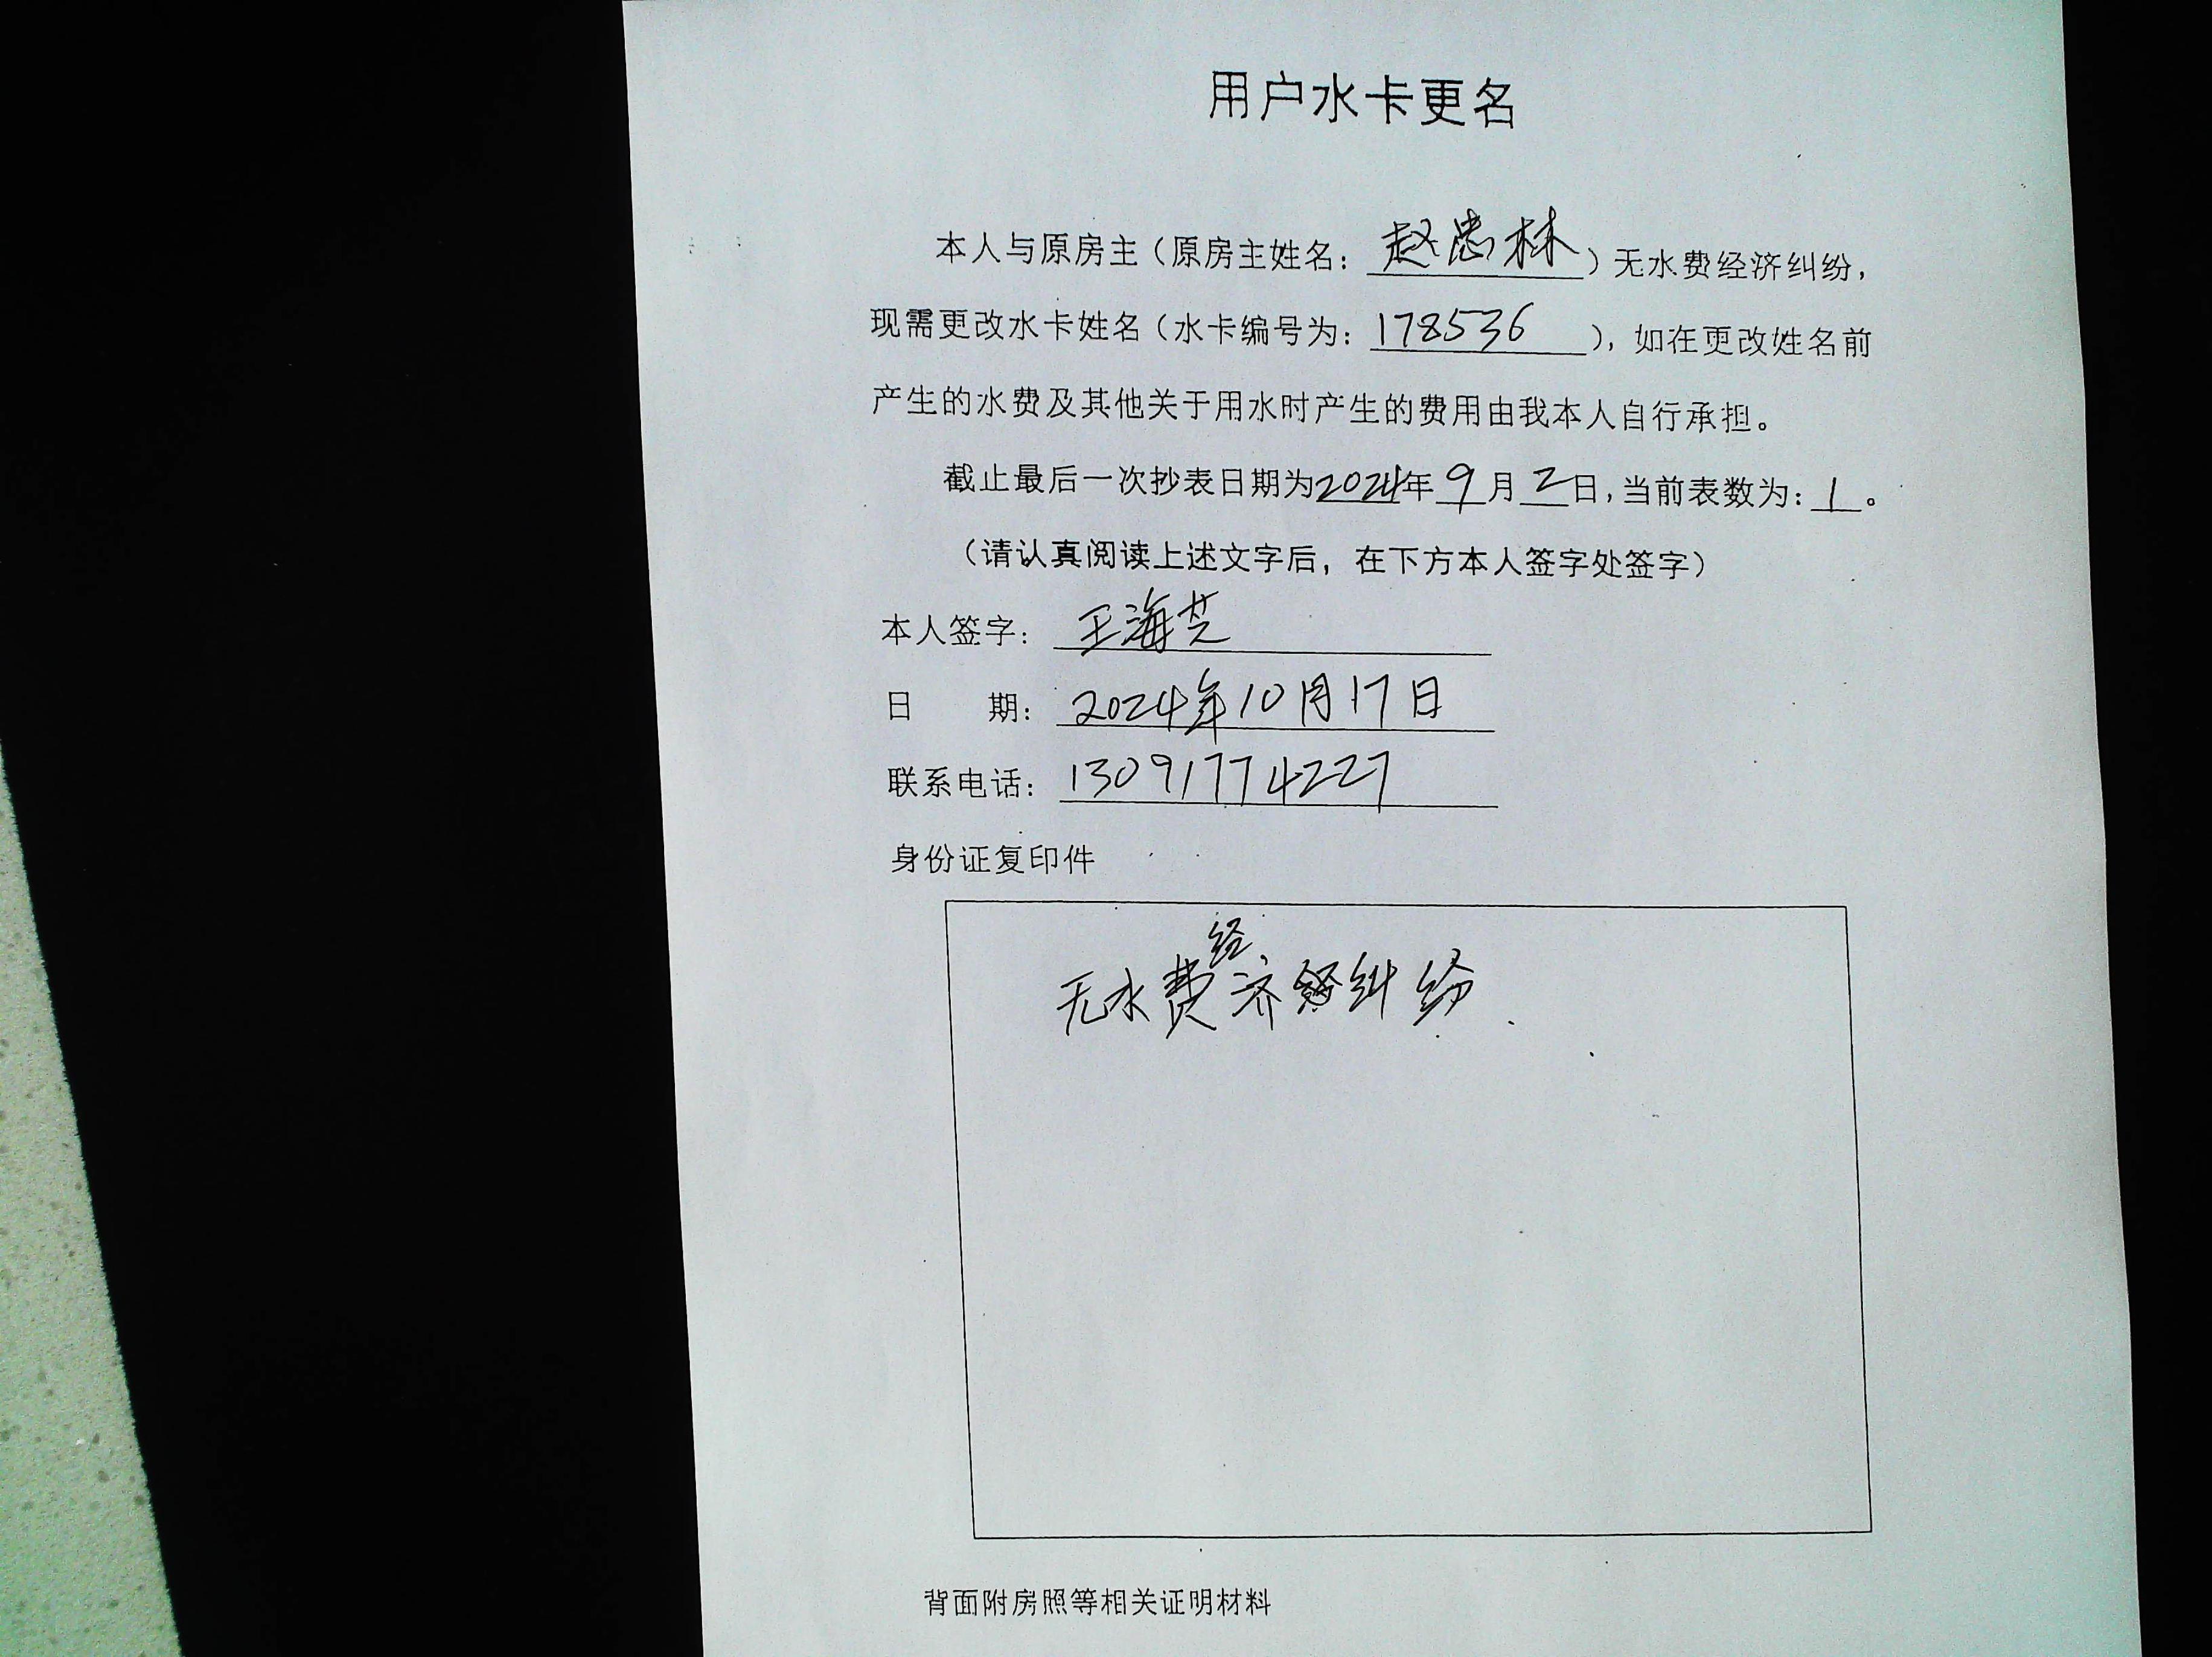 用户水卡更名
本人与原房主（原房主姓名：赵忠林）无水费经济纠纷，
现需更改水卡姓名（水卡编号为：178536），如在更改姓名前
产生的水费及其他关于用水时产生的费用由我本人自行承担。
截止最后一次抄表日期为2024年9月2日，当前表数为：1。
（请认真阅读上述文字后，在下方本人签字处签字）
本人签字：王海芝
日期：2024年10月17日
联系电话：13091774227
身份证复印件
无水费经济纠纷
背面附房照等相关证明材料